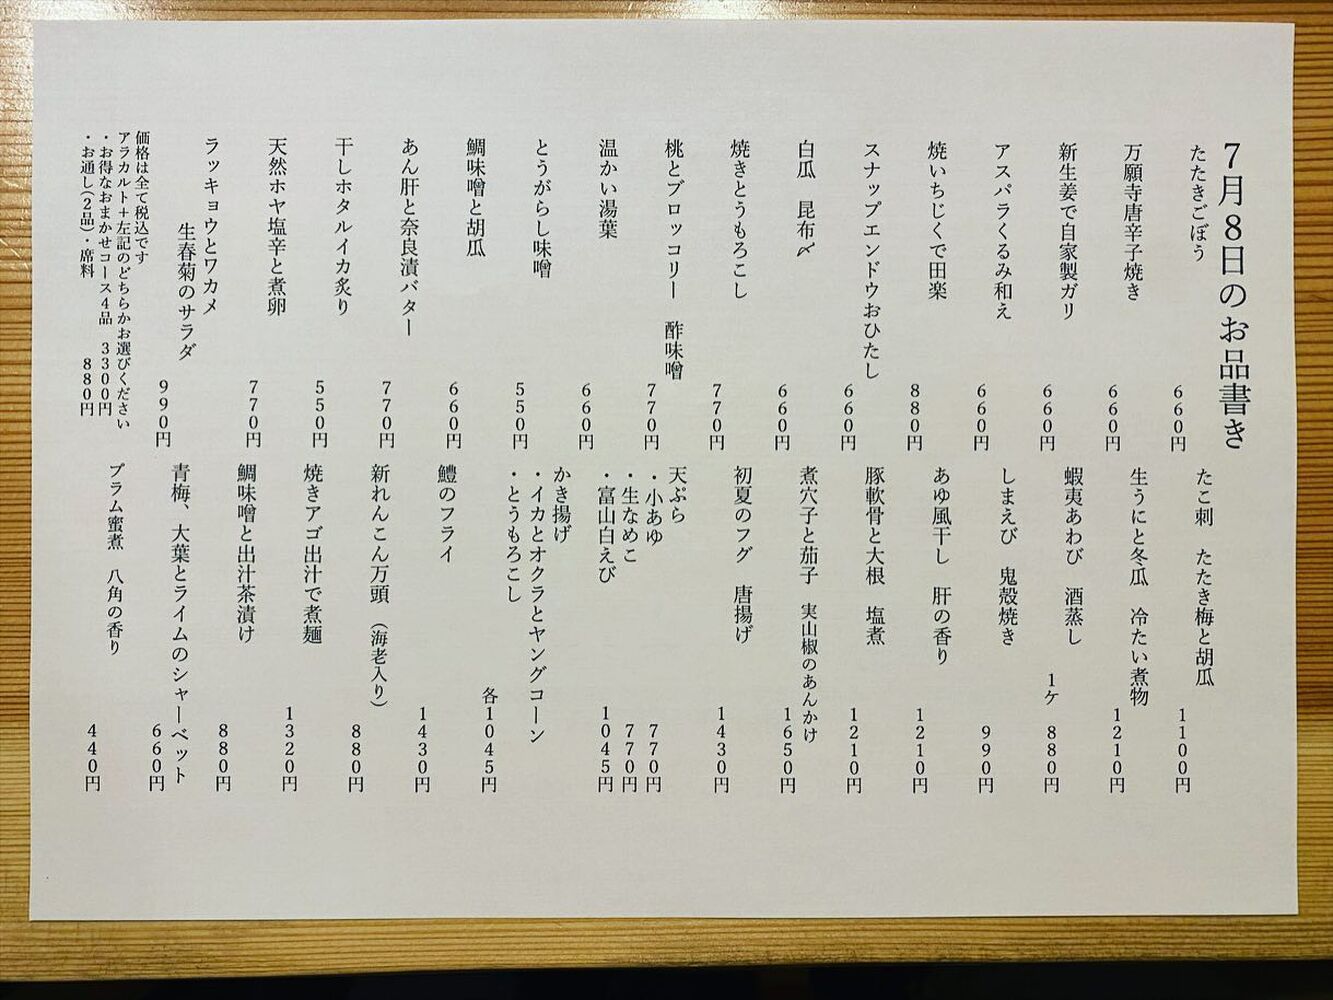 7月8日のお品書き
たたきごぼう
660円
万願寺唐辛子焼き
660円
新生姜で自家製ガリ
660円
アスパラくるみ和え
660円
焼いちじくで田楽
880円
スナップエンドウおひたし
660円
白瓜　昆布〆
660円
焼きとうもろこし
770円
桃とブロッコリー　酢味噌
770円
温かい湯葉
660円
とうがらし味噌
550円
鯛味噌と胡瓜
660円
あん肝と奈良漬バター
770円
干しホタルイカ炙り
550円
天然ホヤ塩辛と煮卵
770円
ラッキョウとワカメ
生春菊のサラダ
990円
価格は全て税込です
アラカルト+左記のどちらかお選びください
・お得なおまかせコース4品　3300円
・お通し(2品)・席料　880円
たこ刺　たたき梅と胡瓜
1100円
生うにと冬瓜　冷たい煮物
1210円
蝦夷あわび　酒蒸し
1ケ　880円
しまえび　鬼殻焼き
990円
あゆ風干し　肝の香り
1210円
豚軟骨と大根　塩煮
1210円
煮穴子と茄子　実山椒のあんかけ
1650円
初夏のフグ　唐揚げ
1430円
天ぷら
・小あゆ　770円
・生なめこ　770円
・富山白えび　1045円
かき揚げ
・イカとオクラとヤングコーン
・とうもろこし
各1045円
鱧のフライ
1430円
新れんこん万頭（海老入り）
880円
焼きアゴ出汁で煮麺
1320円
鯛味噌と出汁茶漬け
880円
青梅、大葉とライムのシャーベット
660円
プラム蜜煮　八角の香り
440円